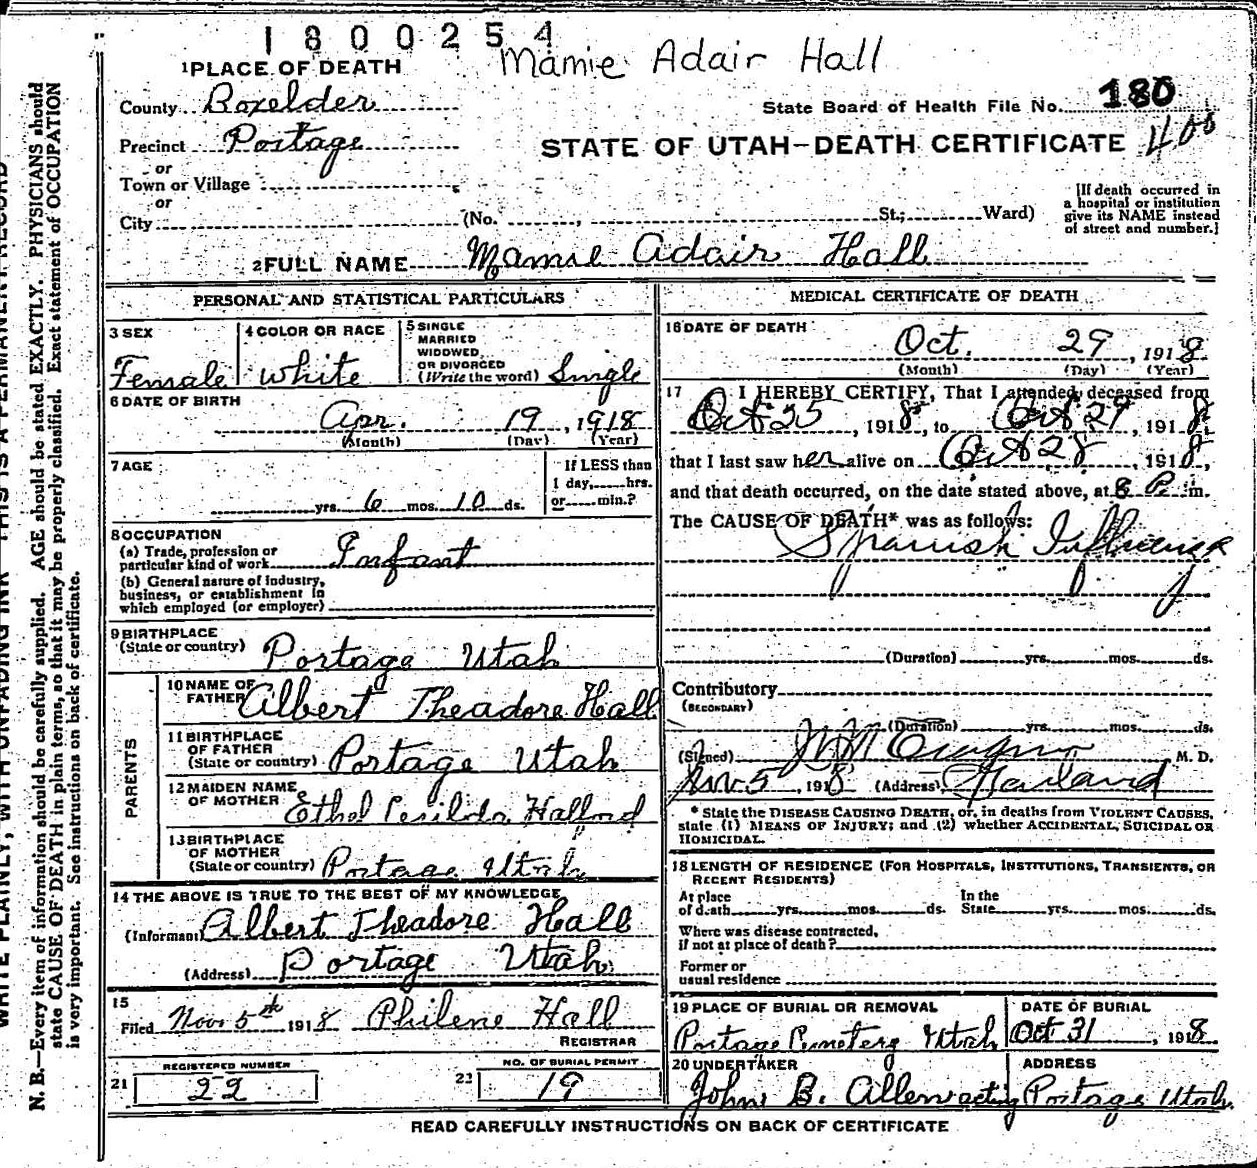 1800254
Mamie Adair Hall
1 PLACE OF DEATH
County Boxelder
State Board of Health File No. 180
Precinct Portage
STATE OF UTAH-DEATH CERTIFICATE 400
or
Town or Village
or
City (No. , St.; Ward)
[If death occurred in
a hospital or institution
give its NAME instead
of street and number.]
2 FULL NAME Mamie Adair Hall
PERSONAL AND STATISTICAL PARTICULARS
3 SEX
Female
4 COLOR OR RACE
White
5 SINGLE
MARRIED
WIDOWED,
OR DIVORCED
(Write the word) Single
6 DATE OF BIRTH
Apr. 19, 1918
(Month) (Day) (Year)
7 AGE
If LESS than
1 day, hrs.
or min.?
yrs. 6 mos. 10 ds.
8 OCCUPATION
(a) Trade, profession or
particular kind of work Infant
(b) General nature of industry,
business, or establishment in
which employed (or employer)
9 BIRTHPLACE
(State or country) Portage Utah
PARENTS
10 NAME OF
FATHER Albert Theadore Hall
11 BIRTHPLACE
OF FATHER
(State or country) Portage Utah
12 MAIDEN NAME
OF MOTHER Ethel
13 BIRTHPLACE
OF MOTHER
(State or country) Portage Utah
14 THE ABOVE IS TRUE TO THE BEST OF MY KNOWLEDGE
(Informant) Albert Theadore Hall
(Address) Portage Utah
15
Filed Nov 5th 1918 Philene Hall
REGISTRAR
REGISTERED NUMBER
21 22
NO. OF BURIAL PERMIT
22 19
MEDICAL CERTIFICATE OF DEATH
16 DATE OF DEATH
Oct. 29, 1918
(Month) (Day) (Year)
17 I HEREBY CERTIFY, That I attended deceased from
Oct 25, 1918, to Oct 29, 1918
that I last saw her alive on Oct 28, 1918,
and that death occurred, on the date stated above, at 8 P. m.
The CAUSE OF DEATH* was as follows:
Spanish Influenza
(Duration) yrs. mos. ds.
Contributory
(SECONDARY)
(Duration) yrs. mos. ds.
(Signed) M. D.
Nov 5, 1918 (Address) Garland
* State the DISEASE CAUSING DEATH, or, in deaths from VIOLENT CAUSES,
state (1) MEANS OF INJURY; and (2) whether ACCIDENTAL, SUICIDAL OR
HOMICIDAL.
18 LENGTH OF RESIDENCE (FOR HOSPITALS, INSTITUTIONS, TRANSIENTS, OR
RECENT RESIDENTS)
At place In the
of death yrs. mos. ds. State yrs. mos. ds.
Where was disease contracted,
if not at place of death?
Former or
usual residence
19 PLACE OF BURIAL OR REMOVAL
Portage Cemetery Utah
DATE OF BURIAL
Oct 31, 1918
20 UNDERTAKER
John B. Allen acting
ADDRESS
Portage Utah.
READ CAREFULLY INSTRUCTIONS ON BACK OF CERTIFICATE
WRITE PLAINLY, WITH UNFADING INK THIS IS A PERMANENT RECORD
N. B.—Every item of information should be carefully supplied. AGE should be stated EXACTLY. PHYSICIANS should
state CAUSE OF DEATH in plain terms, so that it may be properly classified. Exact statement of OCCUPATION
is very important. See instructions on back of certificate.